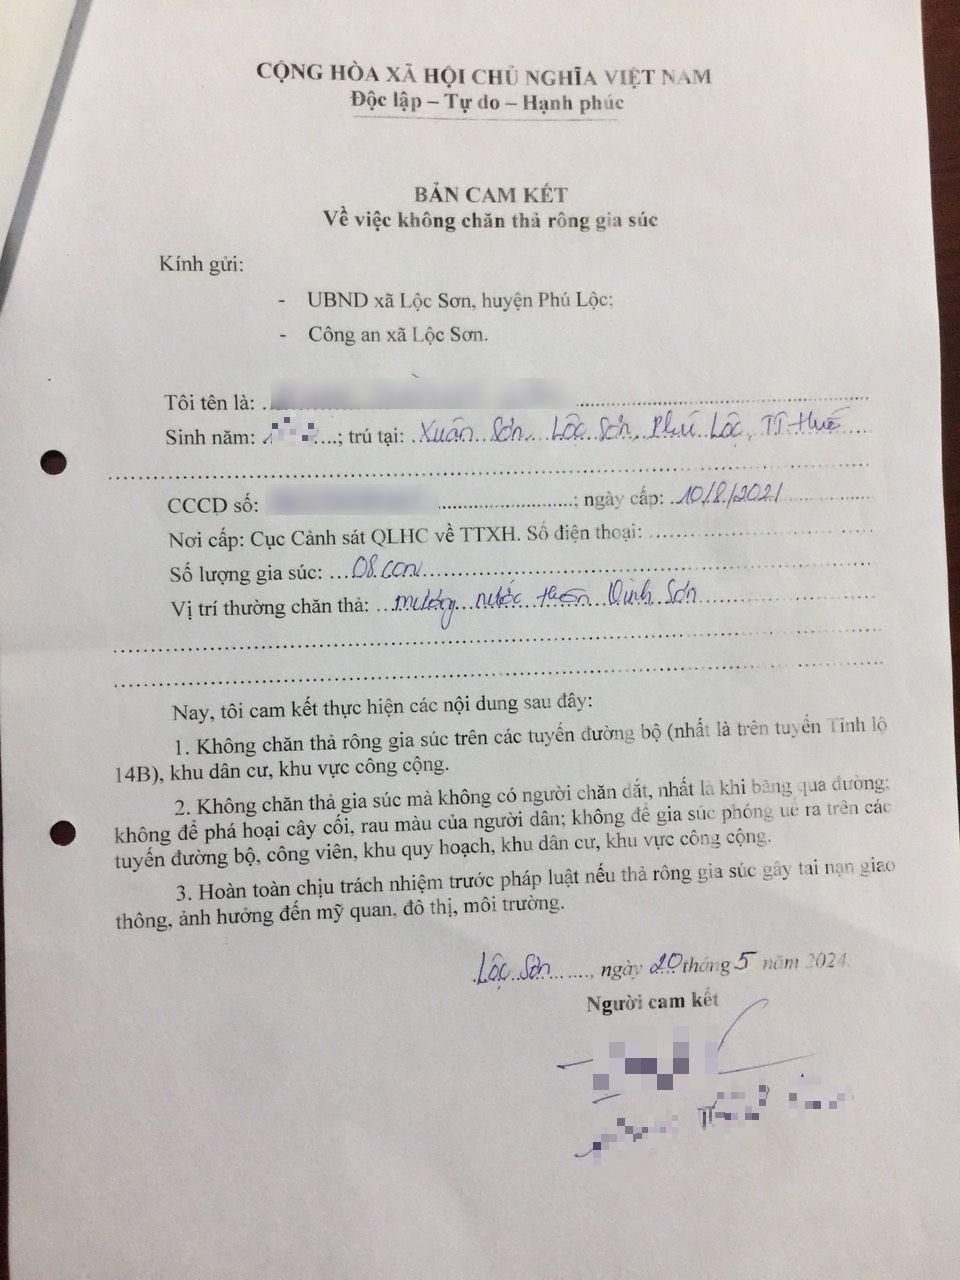 CỘNG HÒA XÃ HỘI CHỦ NGHĨA VIỆT NAM
Độc lập – Tự do – Hạnh phúc
BẢN CAM KẾT
Về việc không chăn thả rông gia súc
Kính gửi:
- UBND xã Lộc Sơn, huyện Phú Lộc;
- Công an xã Lộc Sơn.
Tôi tên là:
Sinh năm: ; trú tại: Xuân Sơn, Lộc Sơn, Phú Lộc, TT Huế
CCCD số: ; ngày cấp: 10/8/2021
Nơi cấp: Cục Cảnh sát QLHC về TTXH. Số điện thoại:
Số lượng gia súc: 08 con
Vị trí thường chăn thả: mương nước thôn Vinh Sơn
Nay, tôi cam kết thực hiện các nội dung sau đây:
1. Không chăn thả rông gia súc trên các tuyến đường bộ (nhất là trên tuyến Tỉnh lộ
14B), khu dân cư, khu vực công cộng.
2. Không chăn thả gia súc mà không có người chăn dắt, nhất là khi băng qua đường;
không để phá hoại cây cối, rau màu của người dân; không để gia súc phóng uế ra trên các
tuyến đường bộ, công viên, khu quy hoạch, khu dân cư, khu vực công cộng.
3. Hoàn toàn chịu trách nhiệm trước pháp luật nếu thả rông gia súc gây tai nạn giao
thông, ảnh hưởng đến mỹ quan, đô thị, môi trường.
Lộc Sơn, ngày 20 tháng 5 năm 2024.
Người cam kết